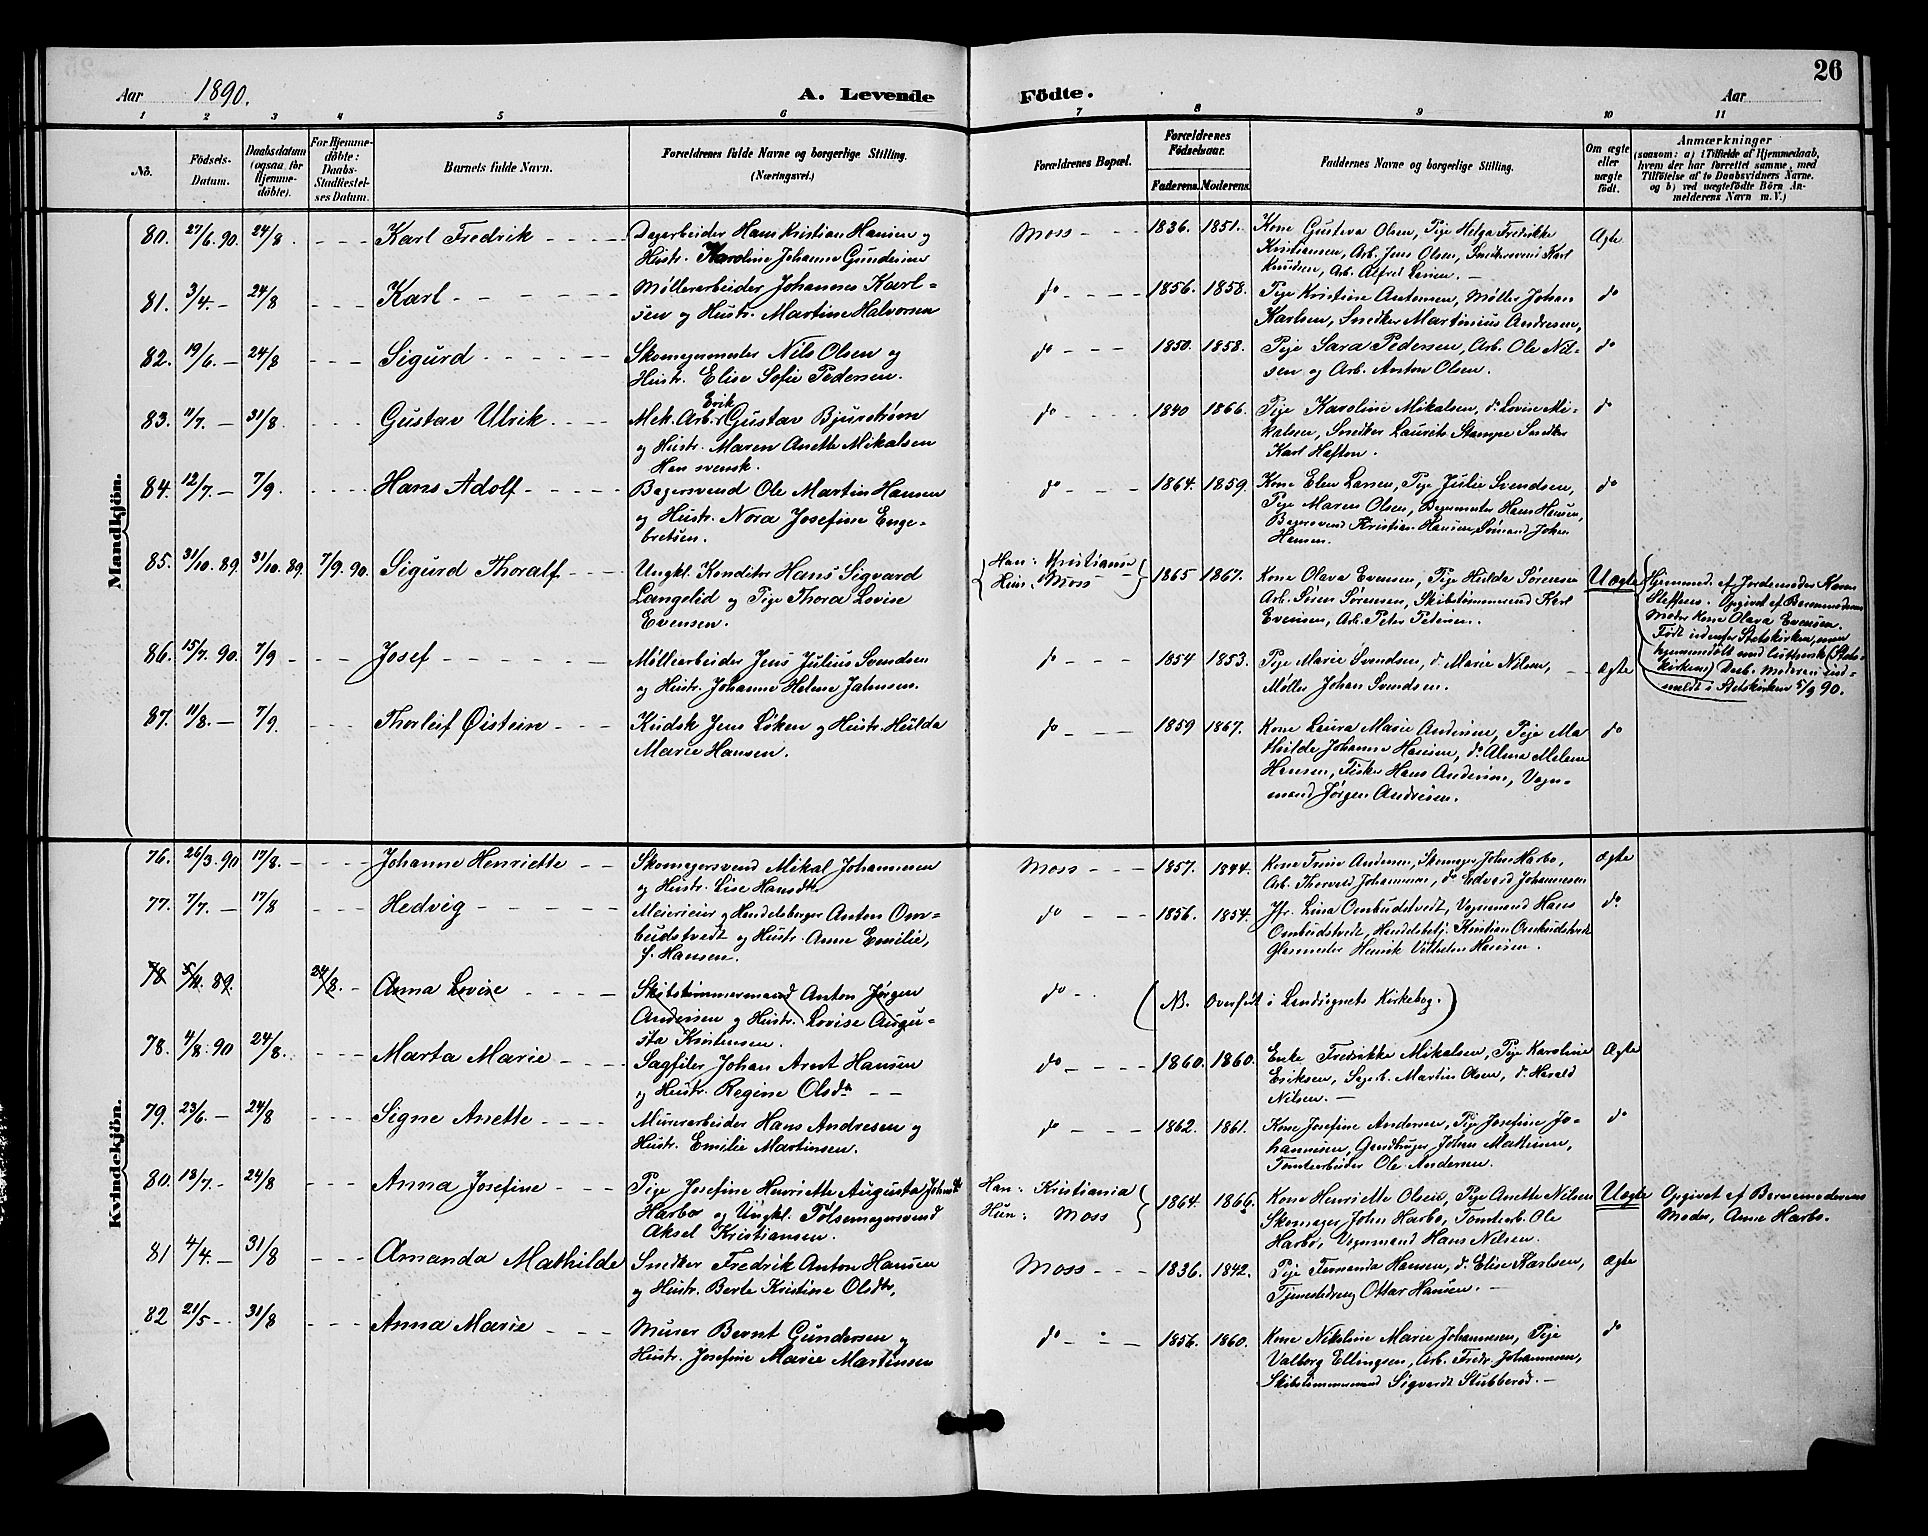 26
Aar 1890. A. Levende Födte. Aar
1 2 3 4 5 6 7 8 9 10 11
No.
Födsels-Datum.
Daabsdatum (ogsaa for Hjemmedöbte).
For Hjemmedöbte: Daabs-Stadfæstelses Datum.
Barnets fulde Navn.
Forældrenes fulde Navne og borgerlige Stilling. (Næringsvei.)
Forældrenes Bopæl.
Forældrenes Födselsaar.
Faderens. Moderens.
Faddernes Navne og borgerlige Stilling.
Om ægte eller uægte födt.
Anmærkninger
(saasom: a) i Tilfælde af Hjemmedaab,
hvem der har forrettet samme, med
Tilföielse af to Daabsvidners Navne.
og b) ved uægtefödte Börn Anmelderens Navn m. V.)
Mandkjön.
80. 27/6. 90. 24/8 - - - Karl Fredrik - - - -
Dagarbeider Hans Kristian Hansen og
Hustr. Karoline Johanne Gundersen
Moss - - - 1836. 1851.
Kone Gusteva Olsen, Pige Helga Fredrikke
Kristiansen, Arb. Jens Olsen, Snedkersvend Karl
Knudsen, Arb. Alfred Larsen. -
Ægte
81. 3/4. - 24/8 - - - Karl - - - - - -
Møllerarbeider Johannes Karl-
sen og Hustr. Martine Halvorsen
do - - - - 1856. 1858.
Pige Kristine Antonsen, Møller Johan
Karlsen, Snedker Martinius Andresen,
do
82. 19/6. - 24/8 - - - Sigurd - - - - -
Skomagermester Nils Olsen og
Hustr. Elise Sofie Pedersen.
do - - - 1850. 1858.
Pige Sara Pedersen, Arb. Ole Nil-
sen og Arb. Anton Olsen.
do
83. 11/7. - 31/8 - - - Gustav Ulrik - - - -
Erik
Mek. Arb. Gustav Bjurstrøm
og Hustr. Maren Anette Mikalsen
Han svensk.
do - - - 1840 1866.
Pige Karoline Mikalsen, do Lovise Mi-
kalsen, Snedker Laurits Stampe Snedker
Karl Hafton.
do
84. 12/7. - 7/9. - - - Hans Adolf - - - -
Bagersvend Ole Martin Hansen
og Hustr. Nora Josefine Enge-
bretsen.
do - - - 1864. 1859.
Kone Elen Larsen, Pige Julie Svendsen,
Pige Maren Olsen, Bagermester Hans Hansen,
Bagersvend Kristian Hansen, Sømand Johan
Hansen.
do
85. 31/10. 89. 31/10. 89. 7/9. 90. Sigurd Thoralf - - -
Ungkl. Konditor Hans Sigvard
Langelid og Pige Thora Lovise
Evensen.
Han: Kristiania
Hun: Moss
1865 1867.
Kone Olava Evensen, Pige Hulda Sørensen
Arb. Søren Sørensen, Skibstømmermand Karl
Evensen, Arb. Peter Petersen.
Uægte
Hjemmed. af Jordemoder Karen
Steffens. Opgivet af Barnemoderens
Moder Kone Olava Evensen.
Født udenfor Statskirken, men
hjemmedøbt med luthersk (Stats-
kirkens) Daab. Moderen ind-
meldt i Statskirken 5/9 90.
86. 15/7. 90. 7/9 - - - Josef - - - - -
Møllearbeider Jens Julius Svendsen
og Hustr. Johanne Helene Jahnsen.
do - - - 1854 1853.
Pige Marie Svendsen, do Marie Nilsen,
Møller Johan Svendsen.
Ægte
87. 11/8. - 7/9. - - - Thorleif Øistein - - -
Kudsk Jens Løken og Hustr. Hulda
Marie Hansen.
do - - - 1859 1867.
Kone Laura Marie Andersen, Pige Ma
thilde Johanne Hansen, do Alma Milene
Hansen, Fisker Hans Andersen, Vogn-
mand Jørgen Andresen.
do
Kvindekjön.
76. 26/3. 90 17/8. - - - Johanne Henriette - -
Skomagersvend Mikal Johannesen
og Hustr. Lise Hansdtr
Moss - - - 1857. 1844.
Kone Trine Andersen, Skomager John Harbo,
Arb. Thorvald Johannesen, do Edvard Johannesen
Ægte
77. 7/7. - 17/8 - - - Hedvig - - - - -
Meierieier og Handelsborger Anton Om-
budstvedt og Hustr. Anne Emilie,
f. Hansen.
do - - - 1856. 1854.
Jfr. Lina Ombudstvedt, Vognmand Hans
Ombudstvedt, Handelsbetj. Kristian Ombudstvedt
Glasmester Henrik Vilhelm Hansen.
do
78 5/11. 89. 24/8. - Anna Lovise - - - -
Skibstømmermand Anton Jørgen
Andersen og Hustr. Lovise Augu-
sta Kristensen.
do - - (NB. Overført i Landsognets Kirkebog.)
78. 4/8. 90 24/8. - - - Marta Marie - - -
Sagfiler Johan Arnt Hansen
og Hustr. Regine Olsdtr - -
do - - - - 1860. 1860.
Enke Fredrikke Mikalsen, Pige Karoline
Eriksen, Sagarb. Martin Olsen, do Harald
Nilsen. -
Ægte
79. 23/6. - 24/8 - - - Signe Anette - - - -
Murerarbeider Hans Andresen og
Hustr. Emilie Martinsen.
do - - - - 1862. 1861.
Kone Josefine Andersen, Pige Josefine Jo-
hannesen, Gaardbruger Johan Mathisen,
Tomtearbeider Ole Andersen.
do
80. 18/7. - 24/8 - - - Anna Josefine - - -
Pige Josefine Henriette Augusta Johnsdtr
Harbo og Ungkl. Pølsemagersvend
Aksel Kristiansen.
Han: Kristiania
Hun: Moss
1864. 1866.
Kone Henriette Olsen, Pige Anette Nilsen
Skomager John Harbo, Tomtearb. Ole
Harbo, Vognmand Hans Nilsen.
Uægte
Opgivet af Barnemoderens
Moder, Anne Harbo.
81 4/4. - 31/8 - - - Amanda Mathilde
Snedker Fredrik Anton Hansen
og Hustr. Berte Kristine Olsdtr,
Moss - - - 1836. 1842.
Pige Fernanda Hansen, do Elise Karlsen,
Tjenestedreng Ottar Hansen. -
Ægte
82 21/5 - 31/8 - - - Anna Marie - - -
Murer Bernt Gundersen og
Hustr. Josefine Marie Martinsen
do - - - 1856. 1860.
Kone Nikoline Marie Johannesen, Pige
Valborg Ellingsen, Arb. Fredr. Johannesen,
Skibstømmermand Sigvardt Stubberød. -
do